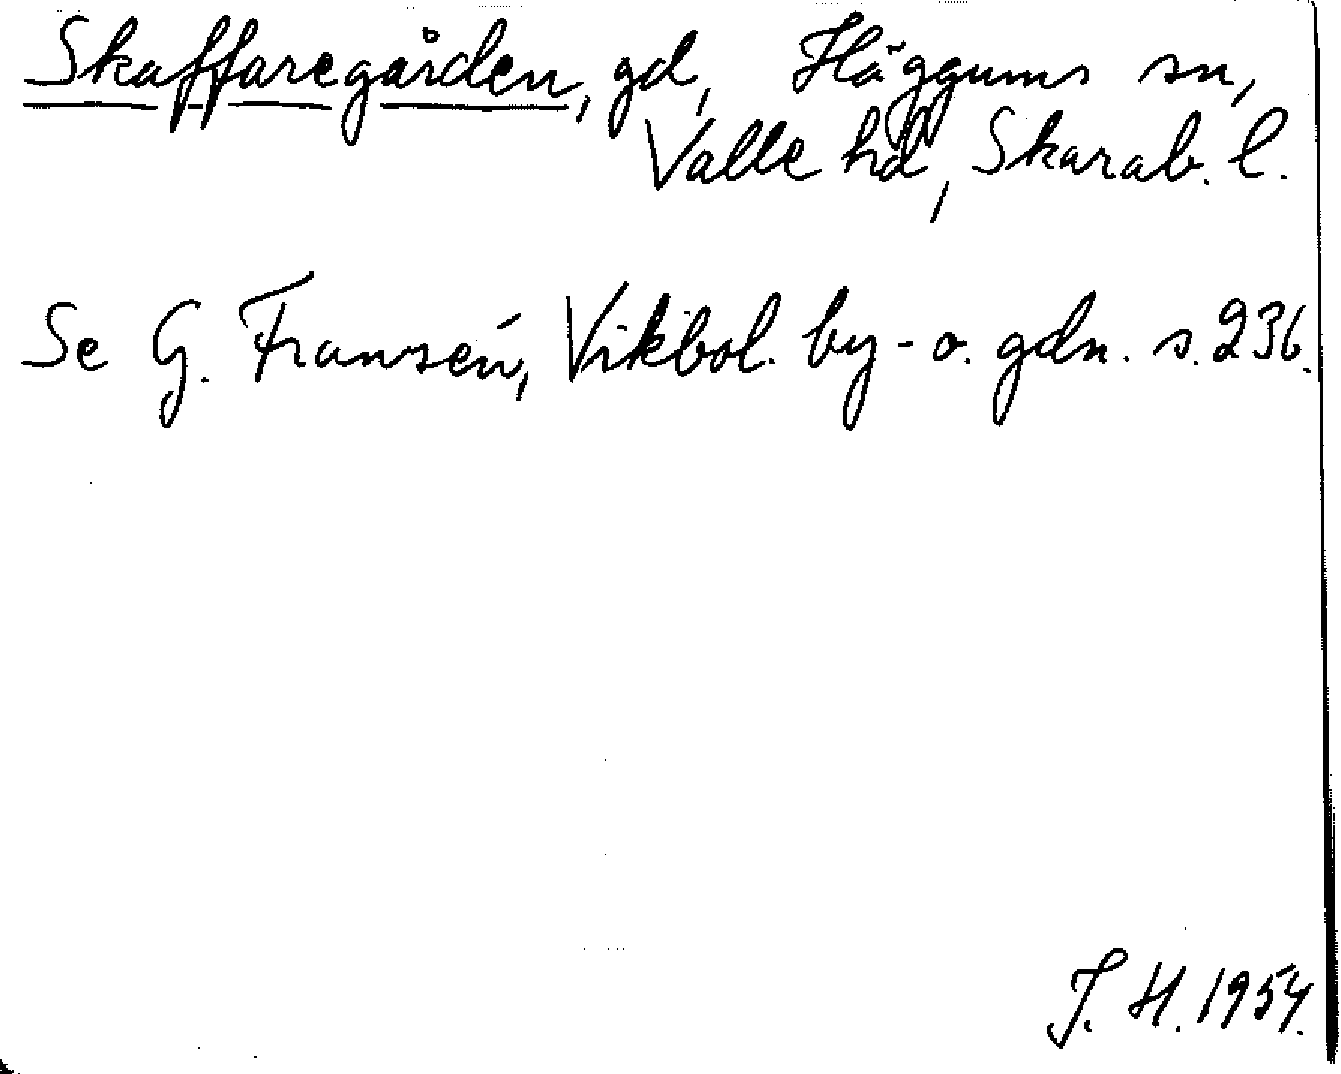 Skaffaregården, gd, Häggums sn,
Valle hd, Skarab. l.
Se G. Fransén, Vikbol. by- o. gdn. s. 236.
J. H. 1954.